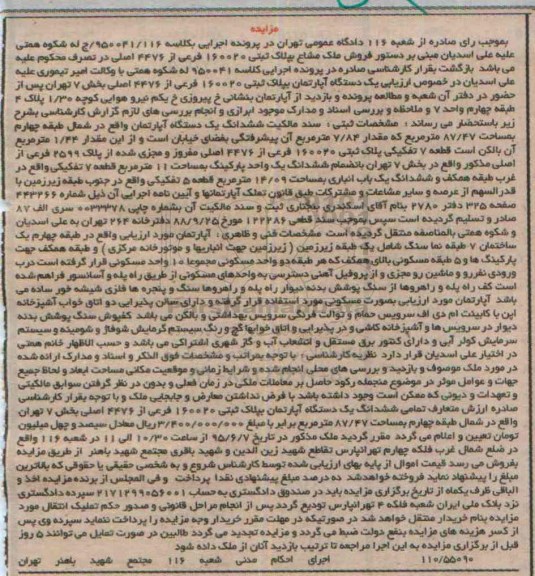 مزایده
بموجب رای صادره از شعبه ۱۱۶ دادگاه عمومی تهران در پرونده اجرایی بکلاسه ۹۵۰۰۴۱/۱۱۶/ج له شکوه همتی
علیه علی اسدیان مبنی بر دستور فروش ملک مشاع بپلاک ثبتی ۱۶۰۰۲۰ فرعی از ۴۴۷۶ اصلی در تصرف محکوم علیه
می باشد بازگشت بقرار کارشناسی صادره در پرونده اجرایی کلاسه ۹۵۰۰۴۱ له شکوه همتی با وکالت امیر تیموری علیه
علی اسدیان در خصوص ارزیابی یک دستگاه آپارتمان بپلاک ثبتی ۱۶۰۰۲۰ فرعی از ۴۴۷۶ اصلی بخش ۷ تهران پس از
حضور در دفتر آن شعبه و مطالعه پرونده و بازدید از آپارتمان بنشانی خ پیروزی خ یکم نیرو هوایی کوچه ۱/۳۰ پلاک ۴
طبقه چهارم واحد ۷ و ملاحظه و بررسی اسناد و مدارک موجود ابرازی و انجام بررسی های لازم گزارش کارشناسی بشرح
زیر باستحضار می رساند : مشخصات ثبتی : سند مالکیت ششدانگ یک دستگاه آپارتمان واقع در شمال طبقه چهارم
بمساحت ۸۷/۴۷ مترمربع که مقدار ۷/۸۴ مترمربع آن پیشرفتگی بفضای خیابان است و از این مقدار ۱/۴۴ مترمربع
آن بالکن است قطعه ۷ تفکیکی پلاک ثبتی ۱۶۰۰۲۰ فرعی از ۴۴۷۶ اصلی مفروز و مجزی شده از پلاک ۲۵۹۹ فرعی از
اصلی مذکور واقع در بخش ۷ تهران بانضمام ششدانگ یک واحد پارکینگ بمساحت ۱۱ مترمربع قطعه ۷ تفکیکی واقع در
غرب طبقه همکف و ششدانگ یک باب انباری بمساحت ۱۴/۰۹ مترمربع قطعه ۵ تفکیکی واقع در جنوب طبقه زیرزمین با
قدرالسهم از عرصه و سایر مشاعات و مشترکات طبق قانون تملک آپارتمانها و آیین نامه اجرایی آن ذیل شماره ۴۴۲۲۶۶
صفحه ۳۲۵ دفتر ۲۷۸۰ بنام آقای اسکندری بختاری ثبت و سند مالکیت آن بشماره چاپی ۰۰۳۳۲۷۸ سری الف ۸۷
صادر و تسلیم گردیده است سپس بموجب سند قطعی ۱۲۲۲۸۶ مورخ ۸۸/۹/۲۵ دفترخانه ۲۶۴ تهران به علی اسدیان
و شکوه همتی بالمناصفه منتقل گردیده است مشخصات فنی و ظاهری : آپارتمان مورد ارزیابی واقع در طبقه چهارم یک
ساختمان ۷ طبقه نما سنگ شامل یک طبقه زیرزمین ( زیرزمین جهت انباریها و موتورخانه مرکزی ) و طبقه همکف جهت
پارکینگ ها و ۵ طبقه مسکونی بالای همکف که هر طبقه دو واحد مسکونی مجموعا ۱۰ واحد مسکونی قرار گرفته است درب
ورودی نفررو و ماشین رو مجزی و از پروفیل آهنی دسترسی به واحدهای مسکونی از طریق راه پله و آسانسور فراهم شده
است کف راه پله و راهروها از سنگ پوشش بدنه دیوار راه پله و راهروها سنگ و پنجره ها فلزی شیشه خور ساده می
باشد آپارتمان مورد ارزیابی بصورت مسکونی مورد استفاده قرار گرفته و دارای سالن پذیرایی دو اتاق خواب آشپزخانه
اپن با کابینت ام دی اف سرویس حمام و توالت فرنگی سرویس بهداشتی و بالکن می باشد کفپوش سنگ پوشش بدنه
دیوار در سرویس ها و آشپزخانه کاشی و در پذیرایی و اتاق خوابها گچ و رنگ سیستم گرمایش شوفاژ و شومینه و سیستم
سرمایش کولر آبی و دارای کنتور برق مستقل و انشعاب آب و گاز شهری اشتراکی می باشد و حسب الاظهار خانم همتی
در اختیار علی اسدیان قرار دارد نظریه کارشناسی با توجه بمراتب و مشخصات فوق الذکر و اسناد و مدارک ارائه شده
در مورد ملک موصوف و بازدید و بررسی های محلی انجام شده و شرایط زمانی و موقعیت مکانی مساحت ابعاد و لحاظ جمیع
جهات و عوامل موثر در موضوع منجمله رکود حاصل بر معاملات ملکی در زمان فعلی و بدون در نظر گرفتن سوابق مالکیتی
و تعهدات و دیونی که ممکن است وجود داشته باشد با فرض نداشتن معارض و جابجایی ملک و با توجه بقرار کارشناسی
صادره ارزش متعارف تمامی ششدانگ یک دستگاه آپارتمان بپلاک ثبتی ۱۶۰۰۲۰ فرعی از ۴۴۷۶ اصلی بخش ۷ تهران
واقع در شمال طبقه چهارم بمساحت ۸۷/۴۷ مترمربع برابر با مبلغ ۳/۴۰۰/۰۰۰/۰۰۰ ریال معادل سیصد و چهل میلیون
تومان تعیین و اعلام می گردد مقرر گردید ملک مذکور در تاریخ ۹۵/۶/۷ از ساعت ۱۰/۳۰ الی ۱۱ در شعبه ۱۱۶ واقع
در ضلع شمال غرب فلکه چهارم تهرانپارس تقاطع شهید زین الدین و شهید باقری مجتمع شهید باهنر از طریق مزایده
بفروش می رسد قیمت اموال از پایه بهای ارزیابی شده توسط کارشناس شروع و به شخصی حقیقی یا حقوقی که بالاترین
مبلغ را پیشنهاد نماید فروخته خواهد شد ده درصد مبلغ پیشنهادی نقدا پرداخت و فی المجلس از برنده مزایده اخذ و
الباقی ظرف یکماه از تاریخ برگزاری مزایده باید در صندوق دادگستری به حساب ۲۱۷۱۲۹۹۰۵۶۰۰۱ سپرده دادگستری
نزد بانک ملی ایران شعبه فلکه ۴ تهرانپارس تودیع گردد پس از انجام مراحل قانونی و صدور حکم تملیک انتقال مورد
مزایده بنام خریدار منتقل خواهد شد در صورتیکه در مهلت مقرر خریدار وجه مزایده را پرداخت ننماید سپرده وی پس
از کسر هزینه های مزایده بنفع دولت ضبط می گردد و مزایده تجدید می گردد طالبین در صورت تمایل می توانند ۵ روز
قبل از برگزاری مزایده به این اجرا مراجعه تا ترتیب بازدید آنان از ملک داده شود
۱۱۰/۵۵۰۹۰ اجرای احکام مدنی شعبه ۱۱۶ مجتمع شهید باهنر تهران